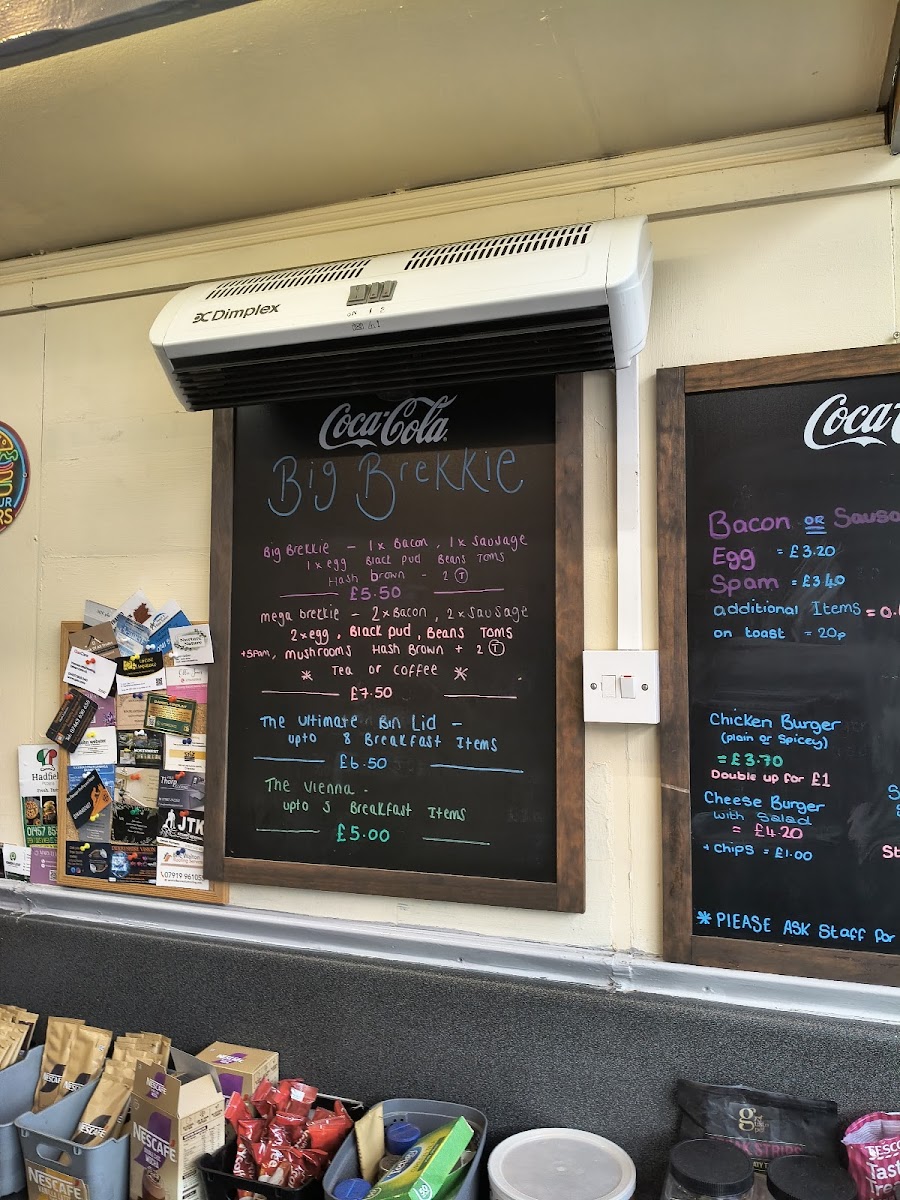 Dimplex
Coca-Cola
Big Brekkie
Big Brekkie - 1x Bacon, 1x Sausage
1x egg Black pud Beans Toms
Hash brown - 2 T
£5.50
mega brekkie - 2xBacon, 2xSausage
2xegg, Black pud, Beans Toms
+SPAM, mushrooms Hash Brown + 2 T
* Tea or coffee *
£7.50
The Ultimate Bin Lid -
upto 8 Breakfast Items
£6.50
The Vienna -
upto 5 Breakfast Items
£5.00
Coca
Bacon OR Sausa
Egg = £3.20
Spam = £3.40
additional Items = 0.
on toast = 20p
Chicken Burger
(plain or Spicey)
= £3.70
Double up for £1
Cheese Burger
with Salad
= £4.20
+ chips = £1.00
* PlEASE ASK Staff for
UR
RS
Hadf
JTK
07919 96105
NESCAFÉ
NESCAFÉ
NESCAFÉ
NESCAFÉ